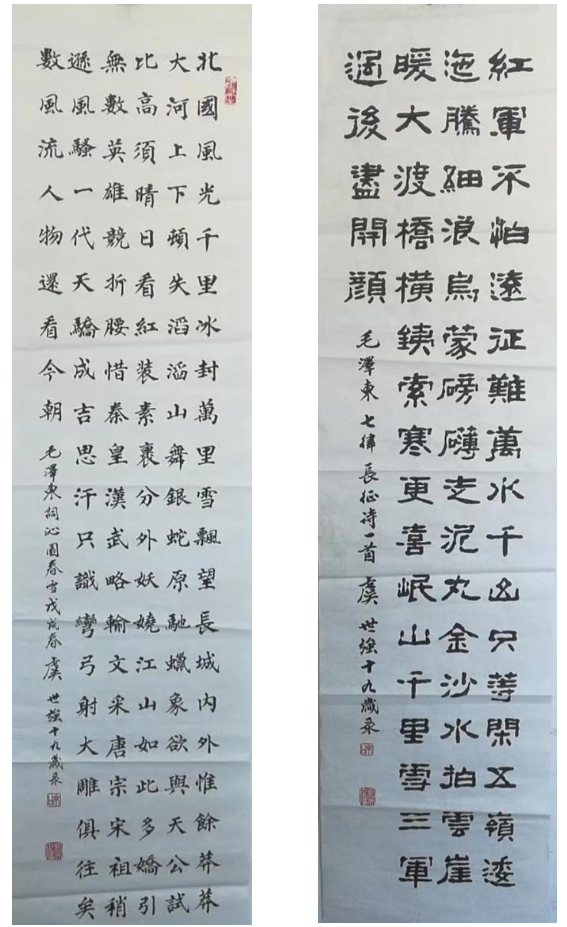 北國風光千里冰封萬里雪飄望長城內外惟餘莽莽
大河上下頓失滔滔山舞銀蛇原馳蠟象欲與天公試
比高須晴日看紅装素裹分外妖嬈江山如此多嬌引
無數英雄競折腰惜秦皇漢武略輸文采唐宗宋祖稍
遜風騷一代天驕成吉思汗只識彎弓射大雕俱往矣
數風流人物還看今朝
毛澤東詞沁園春雪戊戌春虞世強十九歲录
紅軍不怕遠征難萬水千山只等閑五嶺逶
迤騰細浪烏蒙磅礴走泥丸金沙水拍雲崖
暖大渡橋橫鐵索寒更喜岷山千里雪三軍
過後盡開顏
毛澤東七律長征诗一首虞世強十九歲录